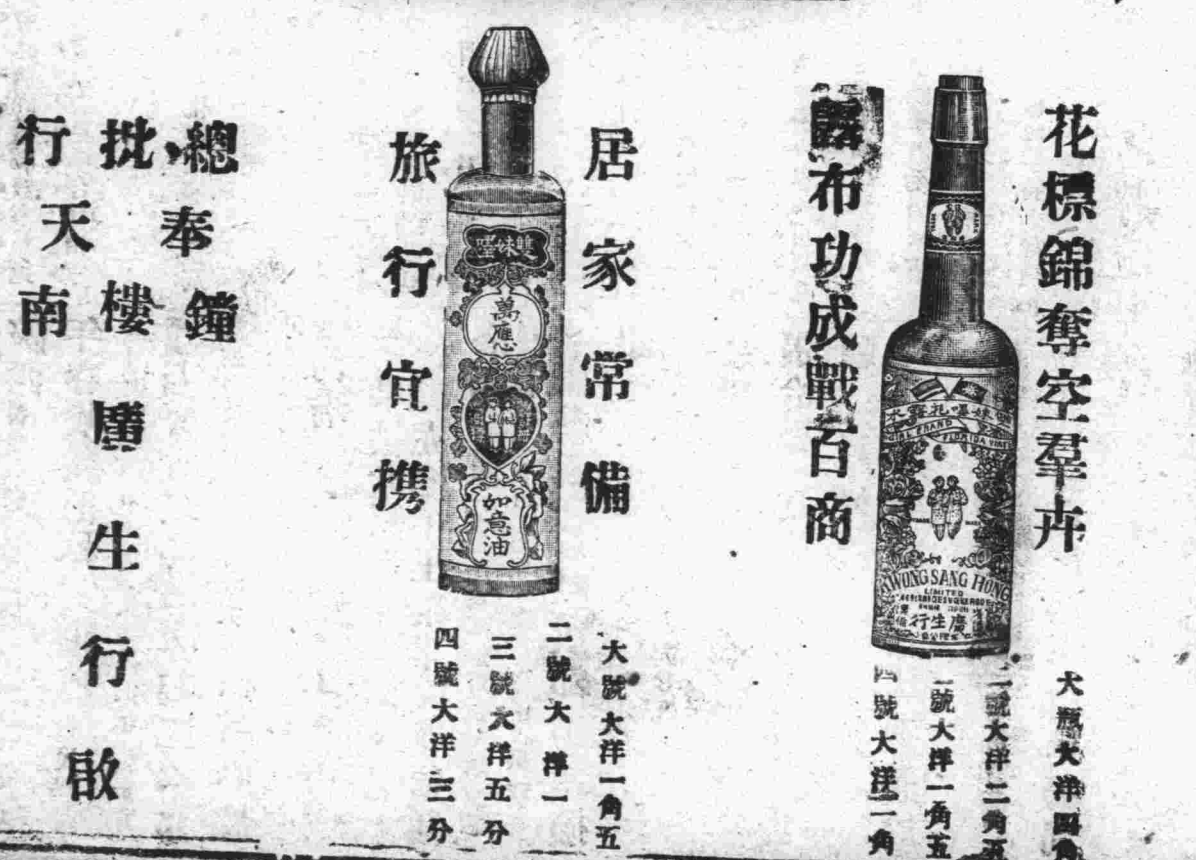 花標錦奪空羣卉
露布功成戰百商
GIRL BRAND
FLORIDA WATER
KWONG SANG HONG
LIMITED
行生廣
大瓶大洋四角
二號大洋二角五
號大洋一角五
四號大洋一角
居家常備
旅行宜携
嘜妹雙
萬應
如意油
大號大洋一角五
二號大洋一
三號大洋五分
四號大洋三分
總批行
奉天
鐘樓南
廣生行啟